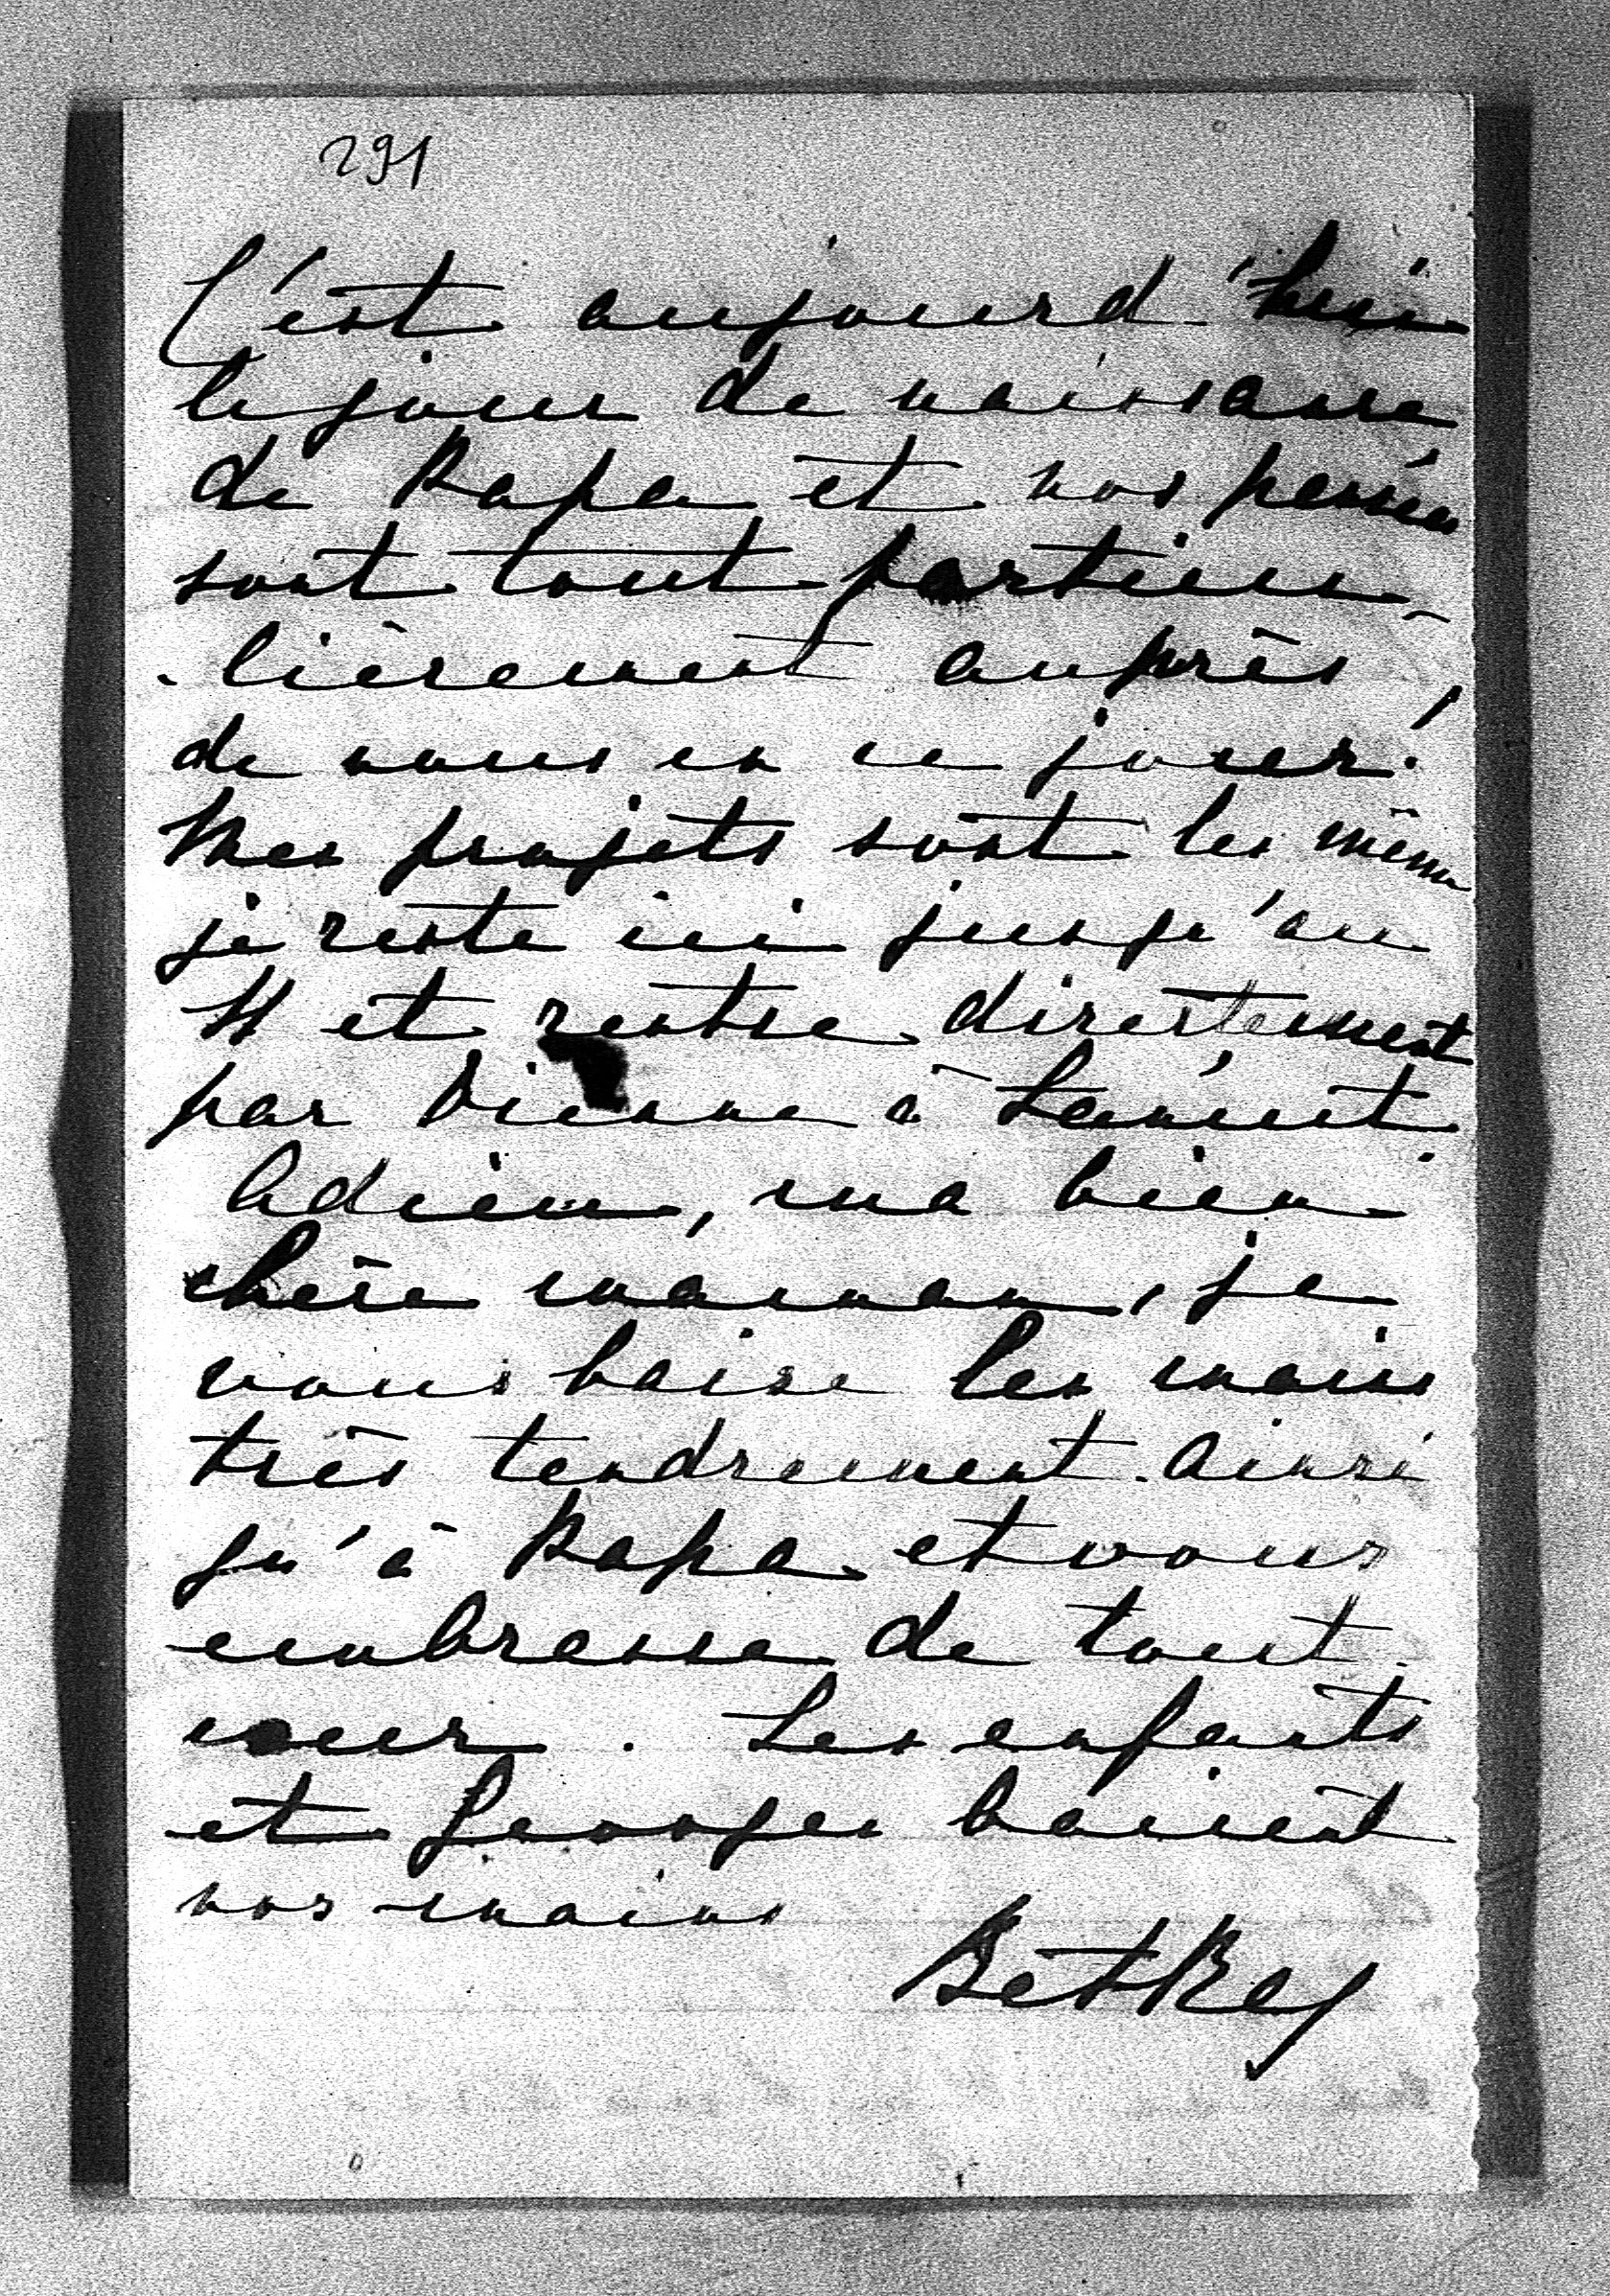 291
C'est aujourd'hui
le jour de naissance
de Papa et nos pensées
sont tout particu-
-lièrement auprès
de vous en ce jour!
Mes projets sont les mêmes
je reste ici jusqu'au
et rentre directement
par Vienne à Łańcut.
Adieu, ma bien
chère maman, je
vous baise les mains
très tendrement ainsi
qu'à Papa et vous
embrasse de tout
coeur. Les enfants
et Georges baisent
vos mains
Betka